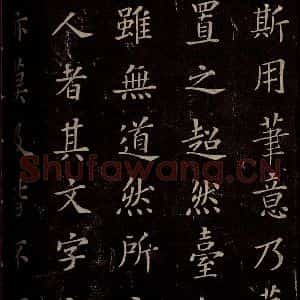 斯用筆意乃
置之超然臺
雖無道然所
人者其文字
亦莫及皆不
Shufawang.CN